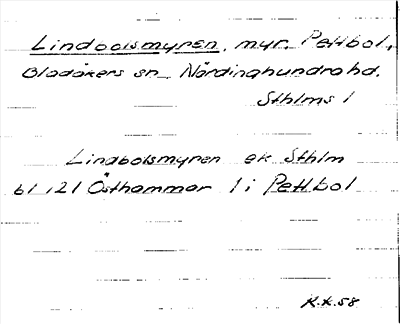 Lindbolsmyren, myr, Pettbol,
Bladåkers sn Närdinghundra hd.
Sthlms l
Lindbolsmyren ek Sthlm
bl 121 Östhammar 1 i Pettbol
K.K. 58